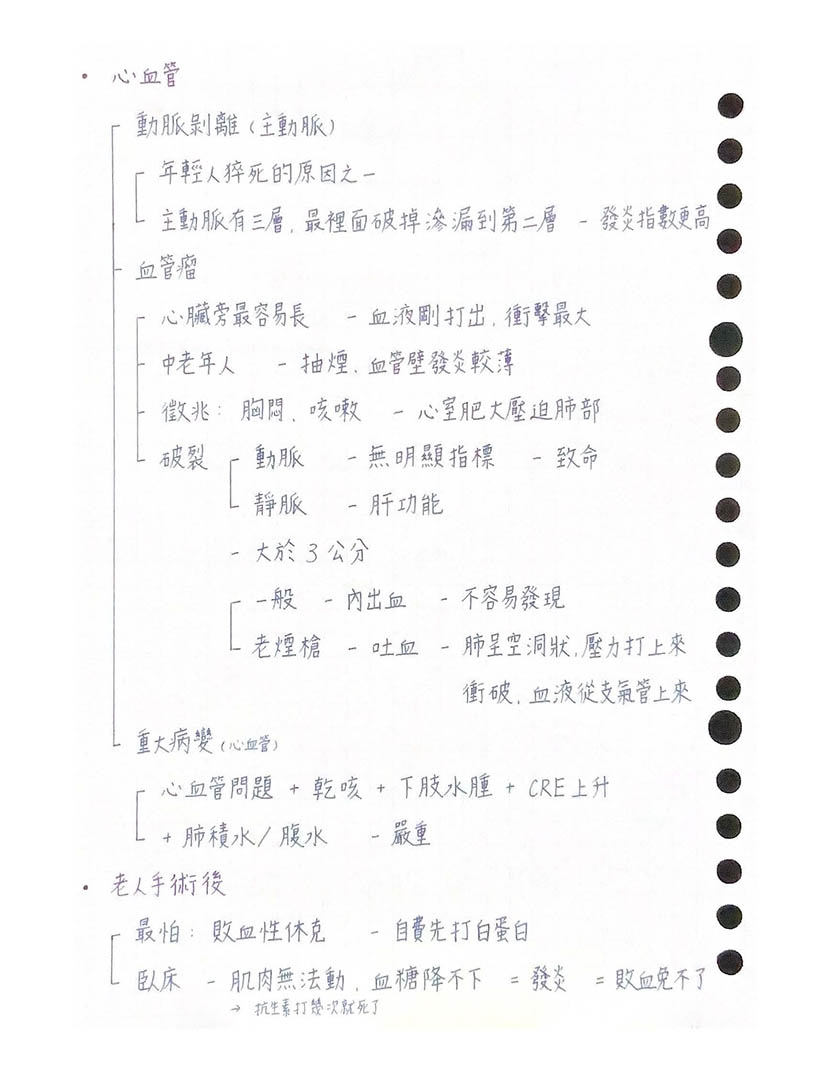 • 心血管
動脈剝離(主動脈)
年輕人猝死的原因之一
主動脈有三層,最裡面破掉滲漏到第二層 - 發炎指數更高
血管瘤
心臟旁最容易長 - 血液剛打出,衝擊最大
中老年人 - 抽煙、血管壁發炎較薄
徵兆: 胸悶、咳嗽 - 心室肥大壓迫肺部
破裂 動脈 - 無明顯指標 - 致命
靜脈 - 肝功能
- 大於 3 公分
一般 - 內出血 - 不容易發現
老煙槍 - 吐血 - 肺呈空洞狀,壓力打上來
衝破,血液從支氣管上來
重大病變(心血管)
心血管問題 + 乾咳 + 下肢水腫 + CRE上升
+ 肺積水/腹水 - 嚴重
• 老人手術後
最怕: 敗血性休克 - 自費先打白蛋白
臥床 - 肌肉無法動、血糖降不下 = 發炎 = 敗血免不了
→ 抗生素打幾次就死了